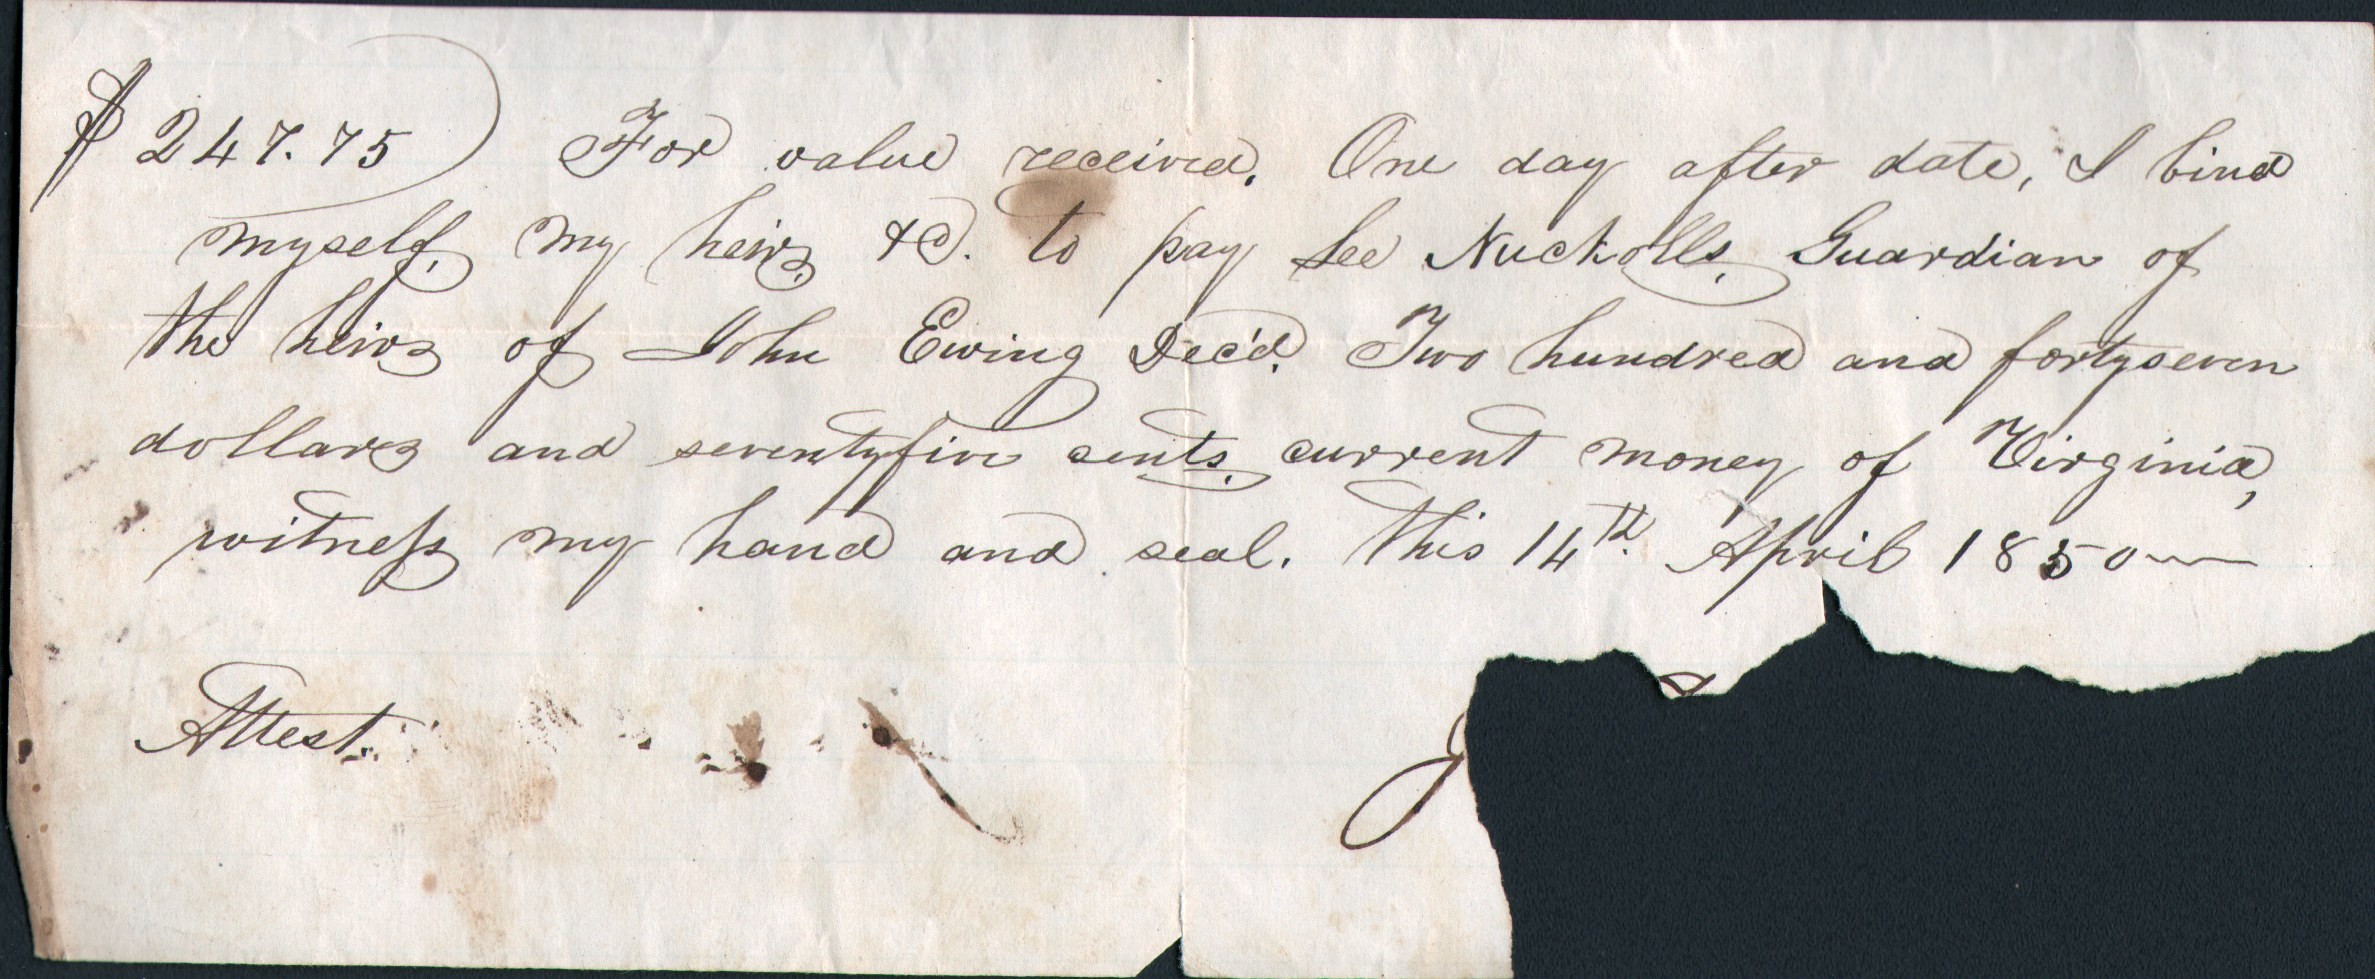 $ 247.75) For value received. One day after date, I bind
myself, my heirs, &c. to pay Lee Nuckolls, Guardian of
the heirs of John Ewing Dec'd. Two hundred and fortyseven
dollars and seventyfive cents, current money of Virginia,
witness my hand and seal. this 14th. April 1850
Attest.
J